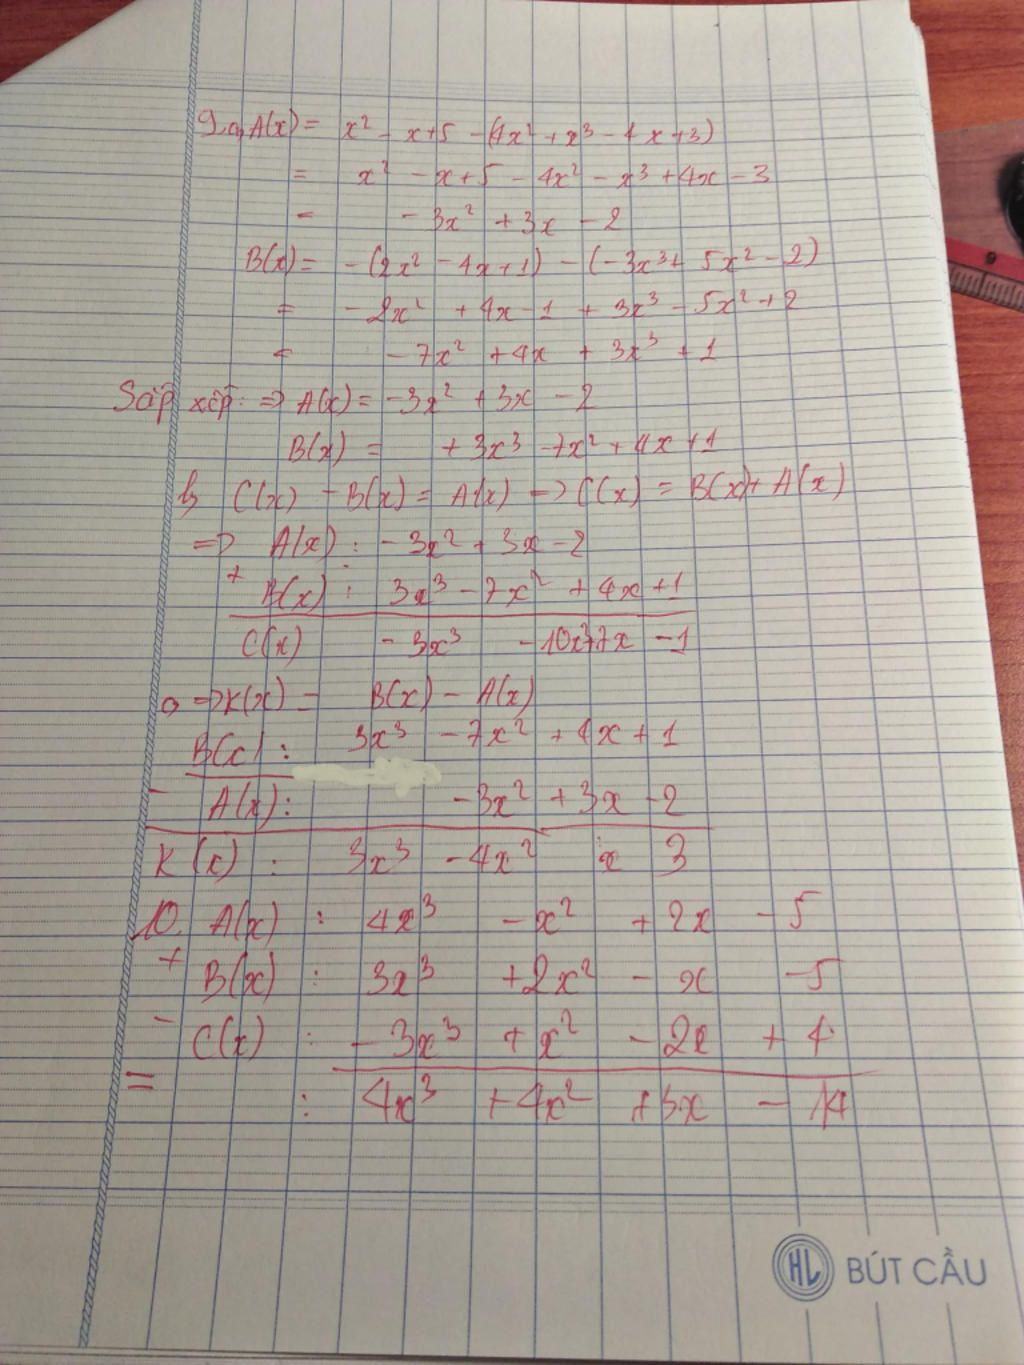 9. a, A(x) = x² - x + 5 - (4x² + x³ - 4x + 3)
= x² - x + 5 - 4x² - x³ + 4x - 3
= - 3x² + 3x - 2
B(x) = - (2x² - 4x + 1) - (-3x³ + 5x² - 2)
= - 2x² + 4x - 1 + 3x³ - 5x² + 2
= - 7x² + 4x + 3x³ + 1
Sắp xếp: => A(x) = -3x² + 3x - 2
B(x) = + 3x³ - 7x² + 4x + 1
b, C(x) - B(x) = A(x) => C(x) = B(x) + A(x)
=> A(x) : - 3x² + 3x - 2
+ B(x) : 3x³ - 7x² + 4x + 1
C(x) - 3x³ - 10x² + 7x - 1
=> K(x) = B(x) - A(x)
B(x) : 3x³ - 7x² + 4x + 1
- A(x) : - 3x² + 3x - 2
K(x) : 3x³ - 4x² x 3
10. A(x) : 4x³ - x² + 2x - 5
+ B(x) : 3x³ + 2x² - x - 5
- C(x) : - 3x³ + x² - 2x + 4
= : 4x³ + 4x² + 3x - 14
9
HL BÚT CẦU